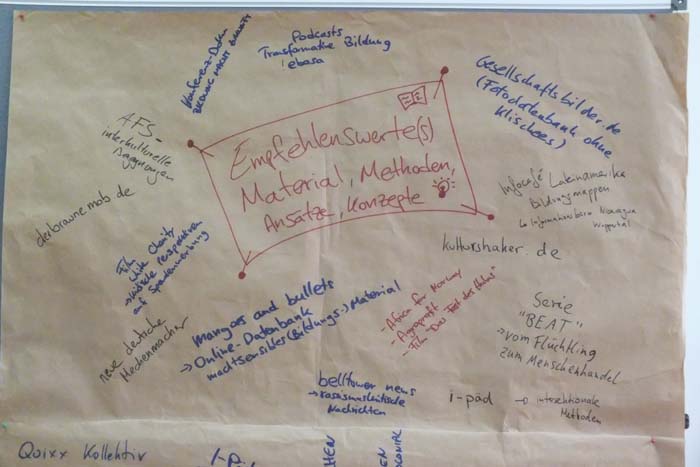 Konferenz-Doku
BILDUNG MACHT
Podcasts
Transformative Bildung
ebasa
Gesellschaftsbilder.de
(Fotodatenbank ohne
Klischees)
AFS-
interkulturelle
Empfehlenswerte(s)
Material, Methoden,
Ansätze, Konzepte
derbraunemob.de
Infocafé Lateinamerika
Bildungsmappen
↳ Informationsbüro Nicaragua
Wuppertal
kulturshaker.de
Film
White Charity
→ kritische Perspektiven
auf Spendenwerbung
mangoes and bullets
→ Online-Datenbank
machtsensibles (Bildungs-) Material
- Africa for Norway
- Agroprofit
- Film "Das Fest des Huhns"
neue deutsche
Medienmacher
Serie
"BEAT"
→ vom Flüchtling
zum Menschenhandel
belltower news
→ rassismuskritische
Nachrichten
i-päd → intersektionale
Methoden
Quixx Kollektiv